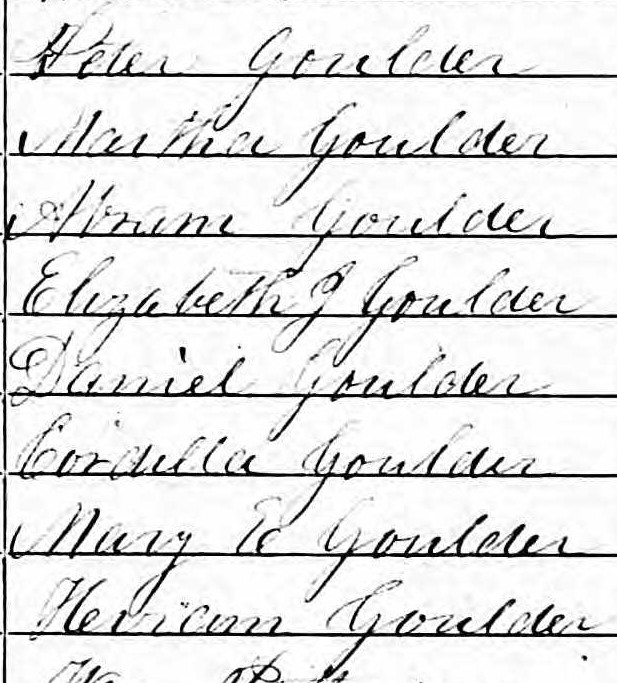 Peter Goulder
Martha Goulder
Abram Goulder
Elizabeth J Goulder
Daniel Goulder
Cordella Goulder
Mary E Goulder
Goulder